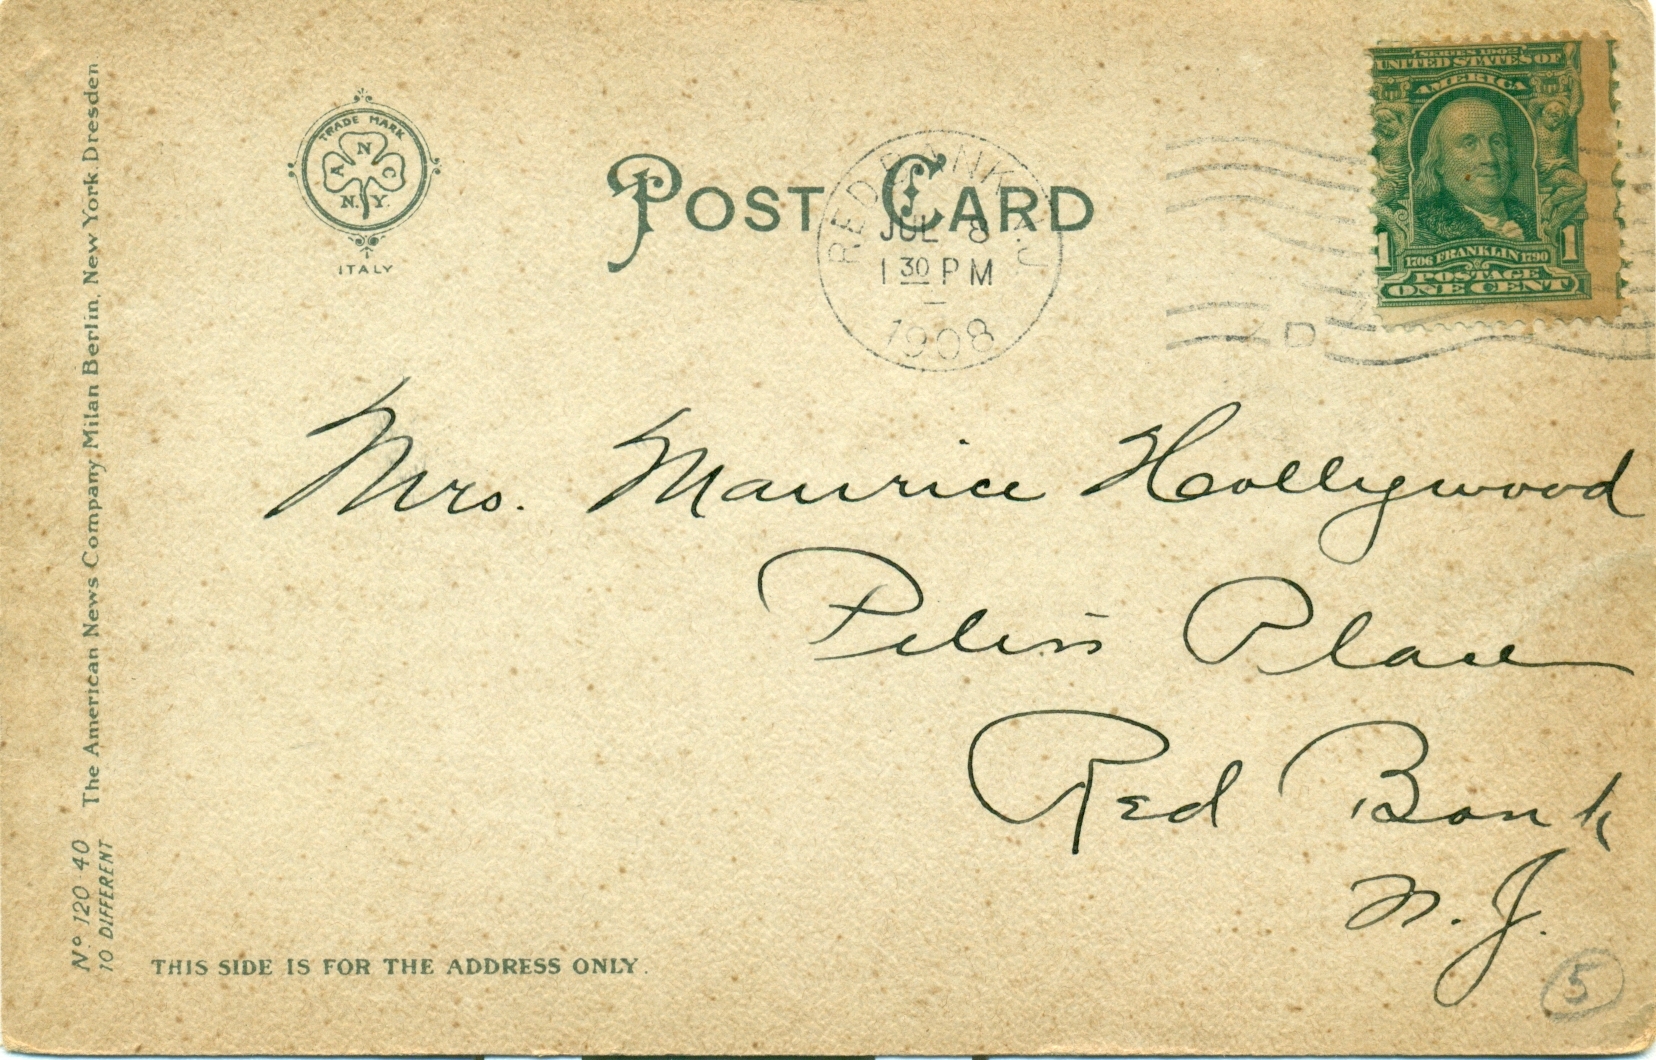 The American News Company, Milan Berlin, New York Dresden
Nº 120-40
10 DIFFERENT
TRADE MARK
A N C
N.Y.
ITALY
POST CARD
RED BANK N.J.
JUL 8
1 30 PM
1908
SERIES 1902
UNITED STATES OF
AMERICA
1 1
1706 FRANKLIN 1790
POSTAGE
ONE CENT
Mrs. Maurice Hollywood
Place
Red Bank
N. J.
5
THIS SIDE IS FOR THE ADDRESS ONLY.